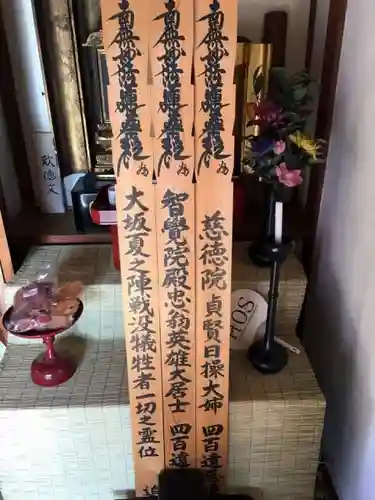 南無妙法蓮華経 為 智覺院殿忠翁英雄大居士 四百遠
南無妙法蓮華経 為 慈徳院貞賢日操大姉 四百遠
南無妙法蓮華経 為 大坂夏之陣戦没犠牲者一切之霊位 追
HOS